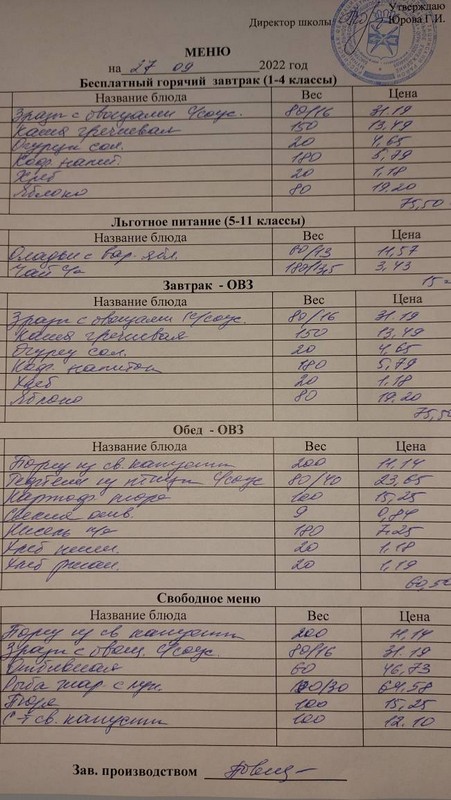 Утверждаю
Директор школы Юрова Г.И.
МЕНЮ
на 27 09 2022 год
Бесплатный горячий завтрак (1-4 классы)
Название блюда Вес Цена
Зразы с овощами с/соус. 80/16 31.19
Каша гречневая 150 13,49
Огурец сол. 20 4,65
Коф. напит. 180 5,79
Хлеб 20 1,18
Яблоко 80 19.20
75,50
Льготное питание (5-11 классы)
Название блюда Вес Цена
Оладьи с вар. ябл. 60/13 11,57
Чай 180/45 3,43
15
Завтрак - ОВЗ
Название блюда Вес Цена
Зразы с овощами с/соус. 80/16 31.19
Каша гречневая 150 13,49
Огурец сол. 20 4,65
Коф. напиток 180 5,79
Хлеб 20 1,18
Яблоко 80 19.20
75,50
Обед - ОВЗ
Название блюда Вес Цена
Борщ из св. капусты 200 11,14
Тефтели из птицы с/соус 80/40 23,65
Картоф. пюре 100 15,25
9 0,84
Кисель 180 7,25
Хлеб пшен. 20 1,18
Хлеб ржан. 20 1,19
60,50
Свободное меню
Название блюда Вес Цена
Борщ из св капусты 200 11,14
Зразы с овощ. с/соус. 80/16 31.19
Отбивная 60 46,73
Рыба жар. с лук. 100/30 64.58
Пюре 100 15,25
С-т св. капусты 100 12.10
Зав. производством